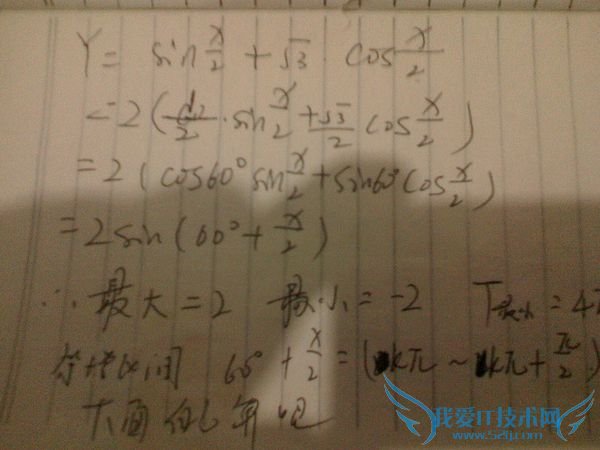 Y = sin x/2 + √3 · cos x/2
= 2 ( 1/2 · sin x/2 + √3/2 cos x/2 )
= 2 ( cos60° sin x/2 + sin60° cos x/2 )
= 2 sin ( 60° + x/2 )
∴ 最大 = 2 最小 = -2 T最小 = 4π
60° + x/2 = ( kπ ~ kπ + π/2 )
下面自己算吧
我爱IT技术网
www.52ij.com